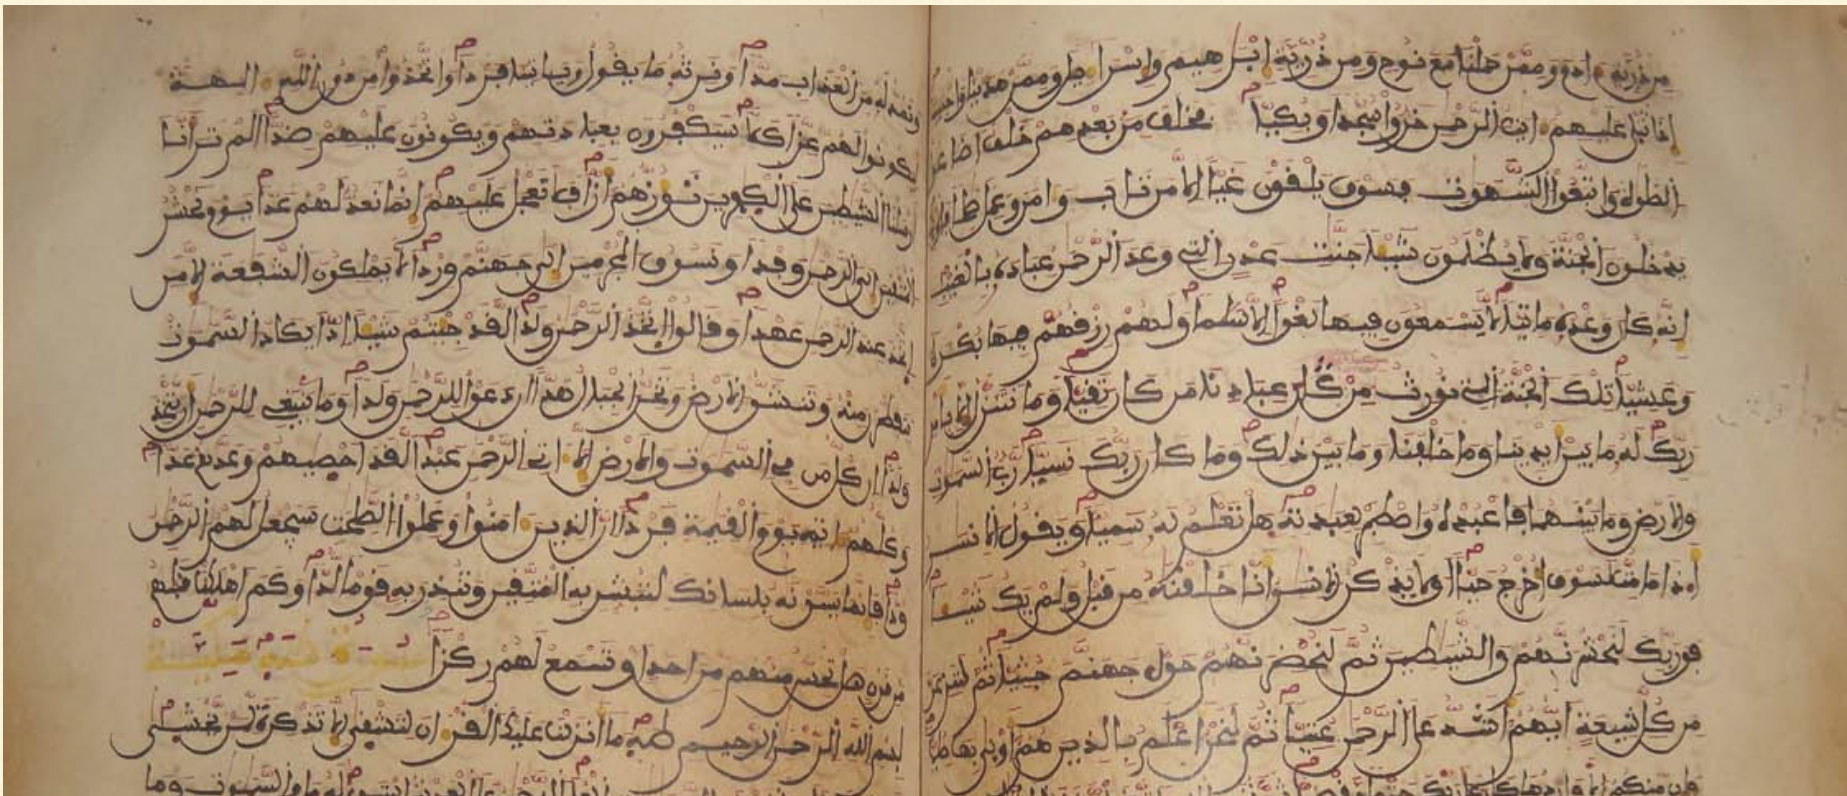 من ذرية ءادم وممن حملنا مع نوح ومن ذرية ابرهيم واسراءيل وممن هدينا واجتبينا
اذا تتلى عليهم ءايت الرحمن خروا سجدا وبكيا فخلف من بعدهم خلف اضاعوا
الصلوة واتبعوا الشهوت فسوف يلقون غيا الا من تاب وءامن وعمل صلحا فاولئك
يدخلون الجنة ولا يظلمون شيئا جنت عدن التي وعد الرحمن عباده بالغيب
انه كان وعده ماتيا لا يسمعون فيها لغوا الا سلما ولهم رزقهم فيها بكرة
وعشيا تلك الجنة التي نورث من عبادنا من كان تقيا وما نتنزل الا بامر
ربك له ما بين ايدينا وما خلفنا وما بين ذلك وما كان ربك نسيا رب السموت
والارض وما بينهما فاعبده واصطبر لعبدته هل تعلم له سميا ويقول الانسن
اءذا ما مت لسوف اخرج حيا اولا يذكر الانسن انا خلقنه من قبل ولم يك شيئا
فوربك لنحشرنهم والشيطين ثم لنحضرنهم حول جهنم جثيا ثم لننزعن
من كل شيعة ايهم اشد على الرحمن عتيا ثم لنحن اعلم بالذين هم اولى بها صليا
وان منكم الا واردها كان على ربك حتما مقضيا
ونمد له من العذاب مدا ونرثه ما يقول وياتينا فردا واتخذوا من دون الله ءالهة
ليكونوا لهم عزا كلا سيكفرون بعبادتهم ويكونون عليهم ضدا الم تر انا
ارسلنا الشيطين على الكفرين تؤزهم ازا فلا تعجل عليهم انما نعد لهم عدا يوم نحشر
المتقين الى الرحمن وفدا ونسوق المجرمين الى جهنم وردا لا يملكون الشفعة الا من
اتخذ عند الرحمن عهدا وقالوا اتخذ الرحمن ولدا لقد جئتم شيئا ادا يكاد السموت
يتفطرن منه وتنشق الارض وتخر الجبال هدا ان دعوا للرحمن ولدا وما ينبغي للرحمن ان يتخذ
ولدا ان كل من في السموت والارض الا ءاتي الرحمن عبدا لقد احصيهم وعدهم عدا
وكلهم ءاتيه يوم القيمة فردا ان الذين ءامنوا وعملوا الصلحت سيجعل لهم الرحمن
ودا فانما يسرنه بلسانك لتبشر به المتقين وتنذر به قوما لدا وكم اهلكنا قبلهم
من قرن هل تحس منهم من احد او تسمع لهم ركزا
بسم الله الرحمن الرحيم طه ما انزلنا عليك القرءان لتشقى الا تذكرة لمن يخشى